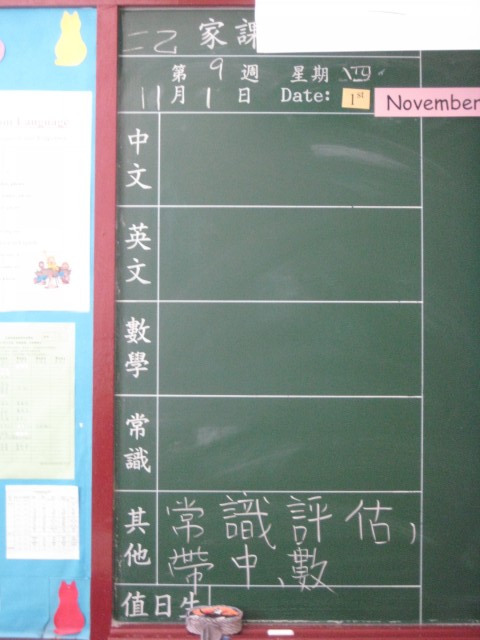 二乙 家課
第9週 星期四
11月1日 Date: 1st November
中文
英文
數學
常識
其他 常識評估,
帶中、數
值日生
Language